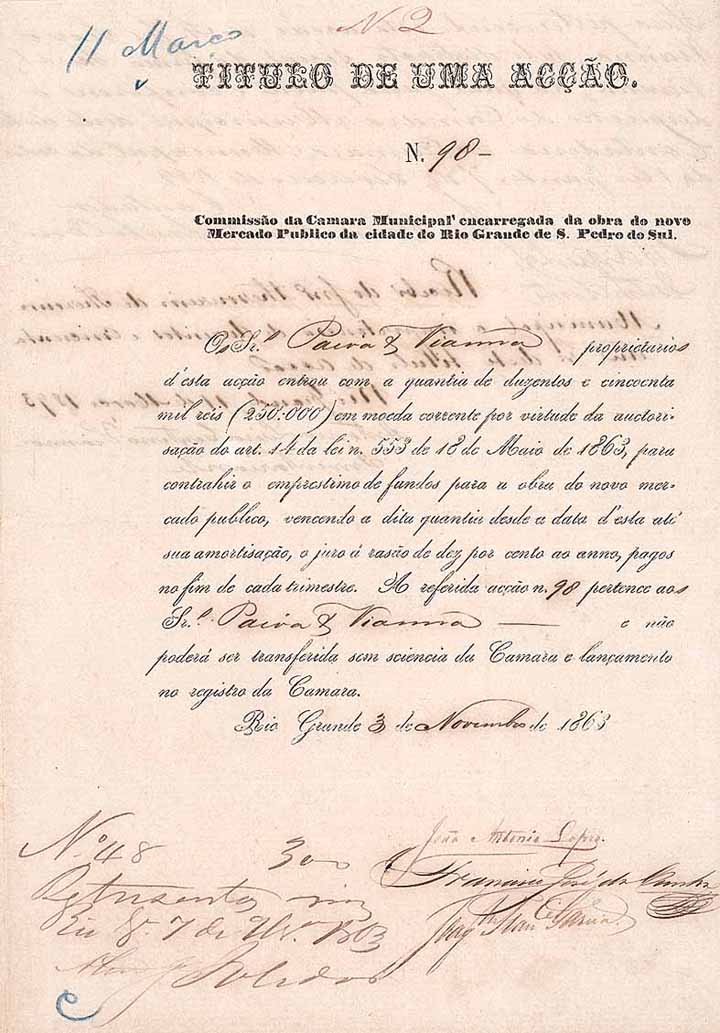 N 2
11 Março
TITULO DE UMA ACÇÃO.
N. 98-
Commissão da Camara Municipal encarregada da obra do novo
Mercado Publico da cidade do Rio Grande de S. Pedro do Sul.
Os Sr.s Paiva & Vianna proprietarios
d'esta acção entrou com a quantia de duzentos e cincoenta
mil reis (250:000) em moeda corrente por virtude da auctori-
sação do art. 14 da lei n. 553 de 18 de Maio de 1863, para
contrahir o emprestimo de fundos para a obra do novo mer-
cado publico, vencendo a dita quantia desde a data d'esta até
sua amortisação, o juro á rasão de dez por cento ao anno, pagos
no fim de cada trimestre. A referida acção n. 98 pertence aos
Sr.s Paiva & Vianna — e não
poderá ser transferida sem sciencia da Camara e lançamento
no registro da Camara.
Rio Grande 3 de Novembro de 1863
João Antonio Lopes.
N.º 48 300
Francisco José da Cunha
7 de 1863